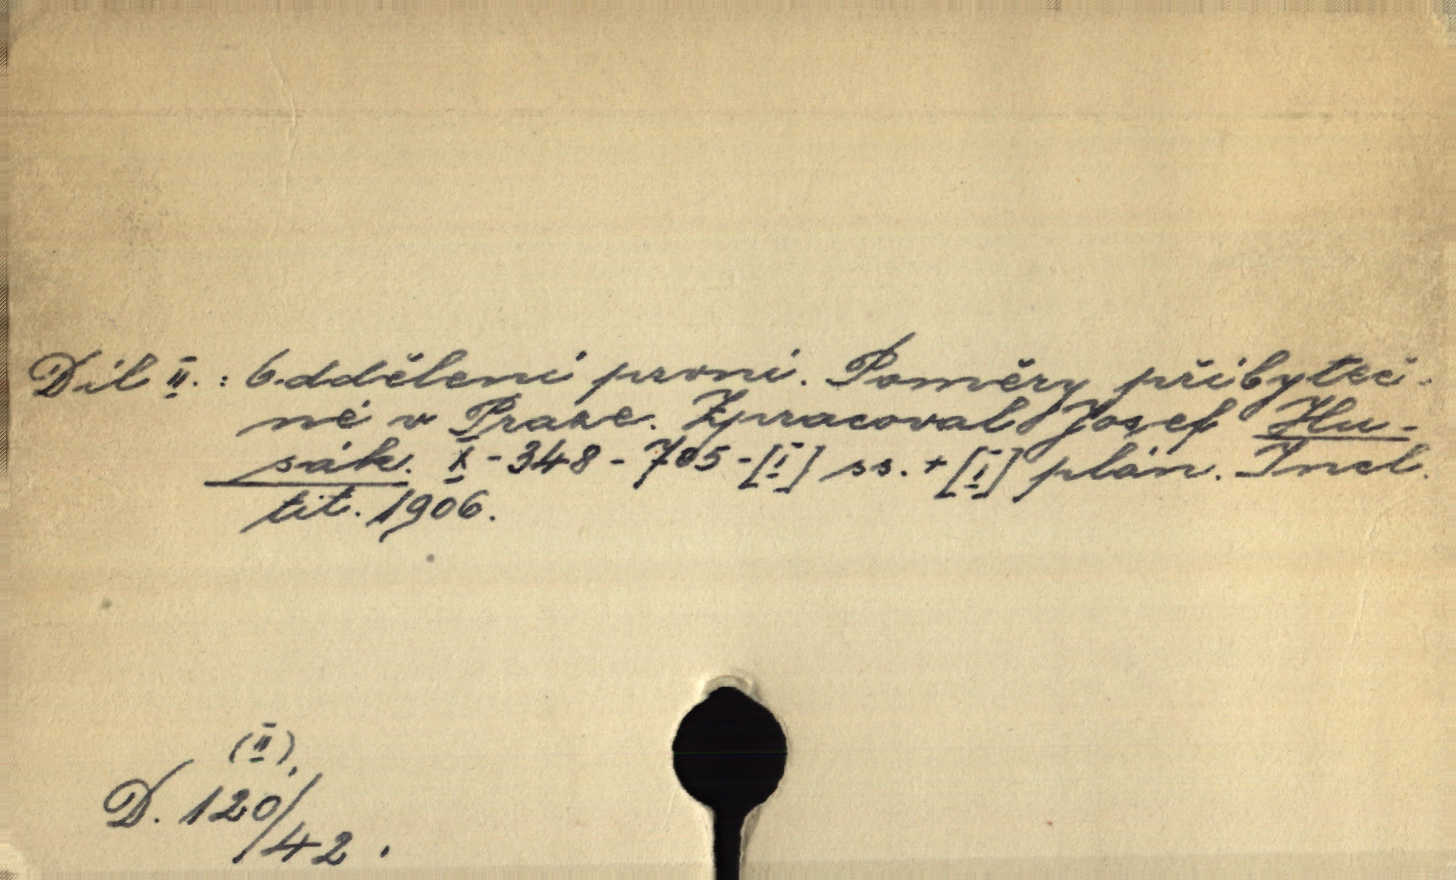 Díl II. : Oddělení první. Poměry příbyteč-
né v Praze. Zpracoval Josef Hu-
sák. X - 348 - 705 - [I] ss. + [I] plán. Incl.
tit. 1906.
(II),
D. 120/
42.